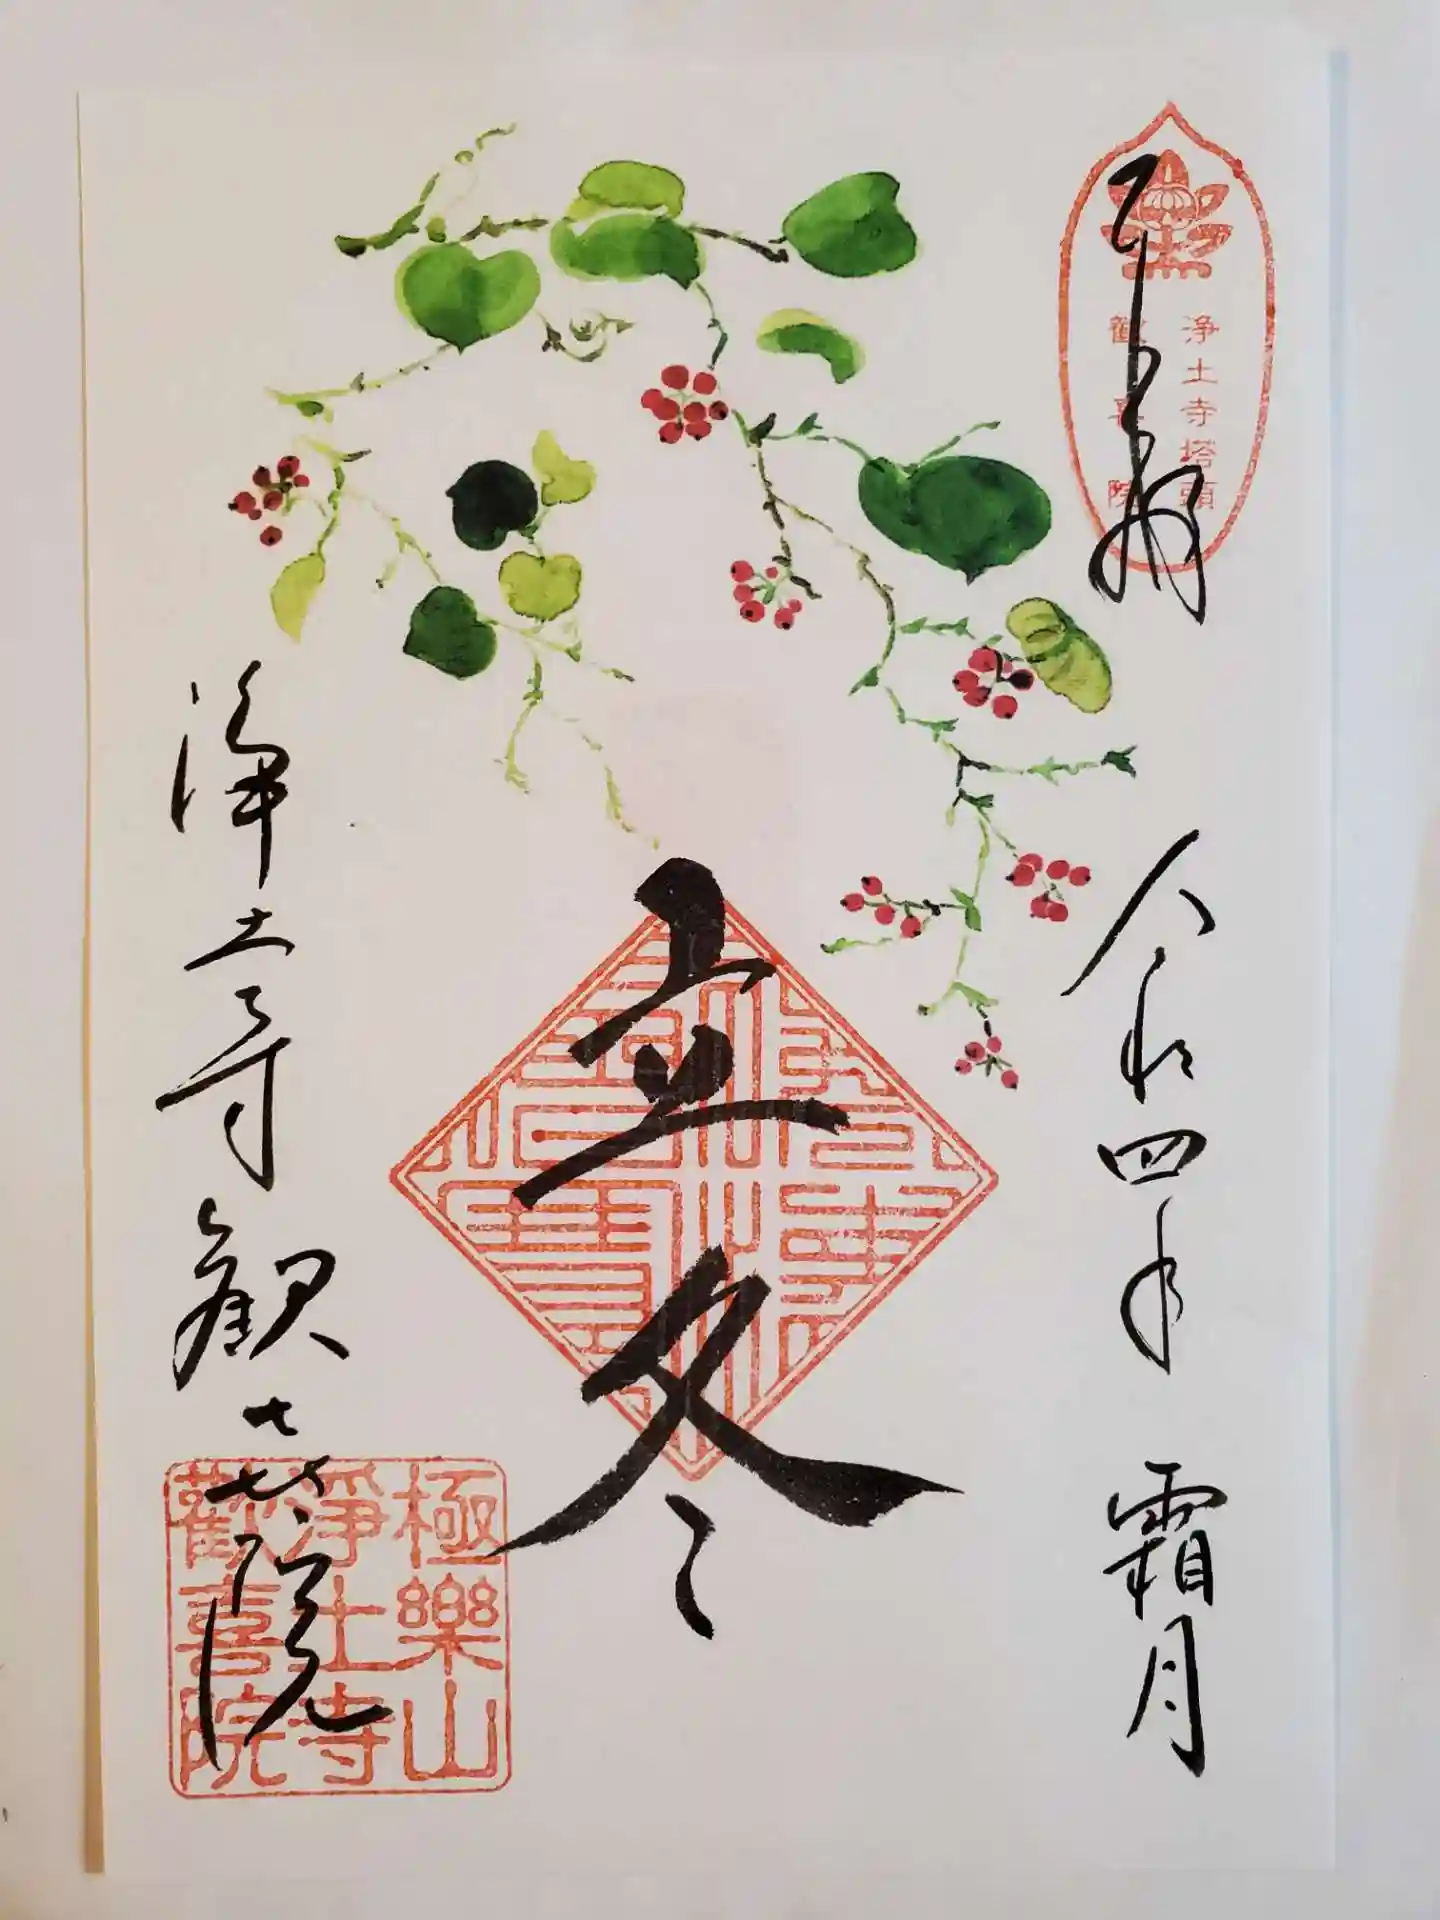 奉拝
浄土寺塔頭
歓喜院
令和四年 霜月
立冬
浄土寺 観喜院
極樂山
淨土寺
歡喜院